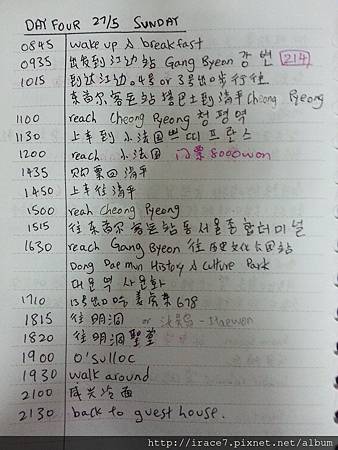 DAY FOUR 27/5 SUNDAY
0845 wake up & breakfast
0935 出发到江边站 Gang Byeon 강변 214
1015 到达江边. 4号 or 3号出口步行往
东首尔客运站搭巴士到清平 Cheong Pyeong
1100 reach Cheong Pyeong 청평역
1130 上车到小法国 쁘띠프랑스
1200 reach 小法国 门票 8000won
1435 回清平
1450 上车往清平
1500 reah Cheong Pyeong
1515 往东首尔客运站 동서울종합터미널
1630 reach Gang Byeon 往历史文化公园站
Dong Dae mun History & Culture Park
1710 13号出口 姜虎东 678
1815 往明洞 or Itaewon
1820 往明洞聖堂
1900 O'sulloc
1930 walk around
2100 咸兴冷面
2130 back to guest house.
http://irace7.pixnet.net/album